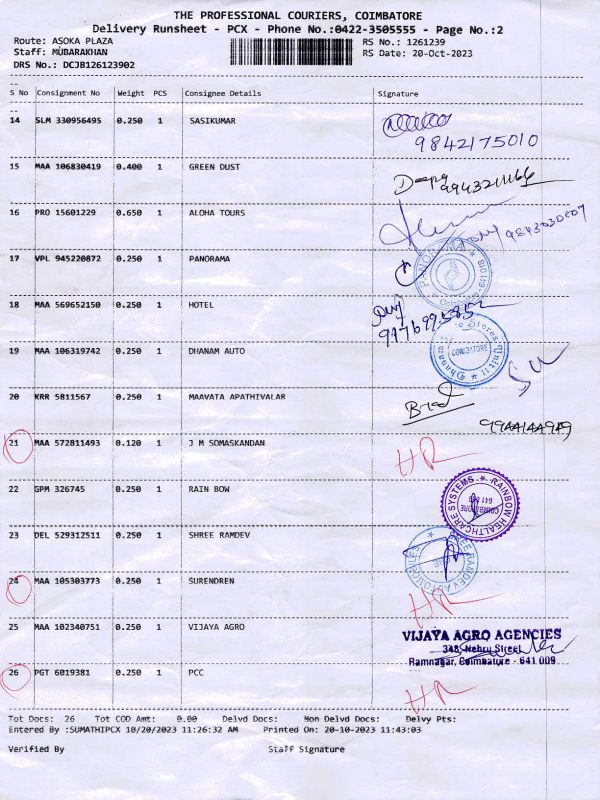 THE PROFESSIONAL COURIERS, COIMBATORE
Delivery Runsheet - PCX - Phone No.:0422-3505555 - Page No.:2
Route: ASOKA PLAZA RS No.: 1261239
Staff: MUBARAKHAN RS Date: 20-Oct-2023
DRS No.: DCJB126123902
S No Consignment No Weight PCS Consignee Details Signature
14 SLM 330956495 0.250 1 SASIKUMAR
9842175010
15 MAA 106830419 0.400 1 GREEN DUST
Deepa
16 PRO 15601229 0.650 1 ALOHA TOURS
17 VPL 945220872 0.250 1 PANORAMA
PANORAMA
18 MAA 569652150 0.250 1 HOTEL
9976995852
19 MAA 106319742 0.250 1 DHANAM AUTO
COIMBATORE
20 KRR 5811567 0.250 1 MAAVATA APATHIVALAR
21 MAA 572811493 0.120 1 J M SOMASKANDAN
HR
22 GPM 326745 0.250 1 RAIN BOW
RAINBOW HEALTHCARE SYSTEMS
COIMBATORE
23 DEL 529312511 0.250 1 SHREE RAMDEV
SHREE RAMDEV AUTOMOBILES
24 MAA 105303773 0.250 1 SURENDREN
HR
25 MAA 102340751 0.250 1 VIJAYA AGRO
VIJAYA AGRO AGENCIES
348, Nehru Street
Ramnagar, Coimbature - 641 009
26 PGT 6019381 0.250 1 PCC
HR
Tot Docs: 26 Tot COD Amt: 0.00 Delvd Docs: Non Delvd Docs: Delvy Pts:
Entered By :SUMATHIPCX 10/20/2023 11:26:32 AM Printed On: 20-10-2023 11:43:03
Verified By Staff Signature